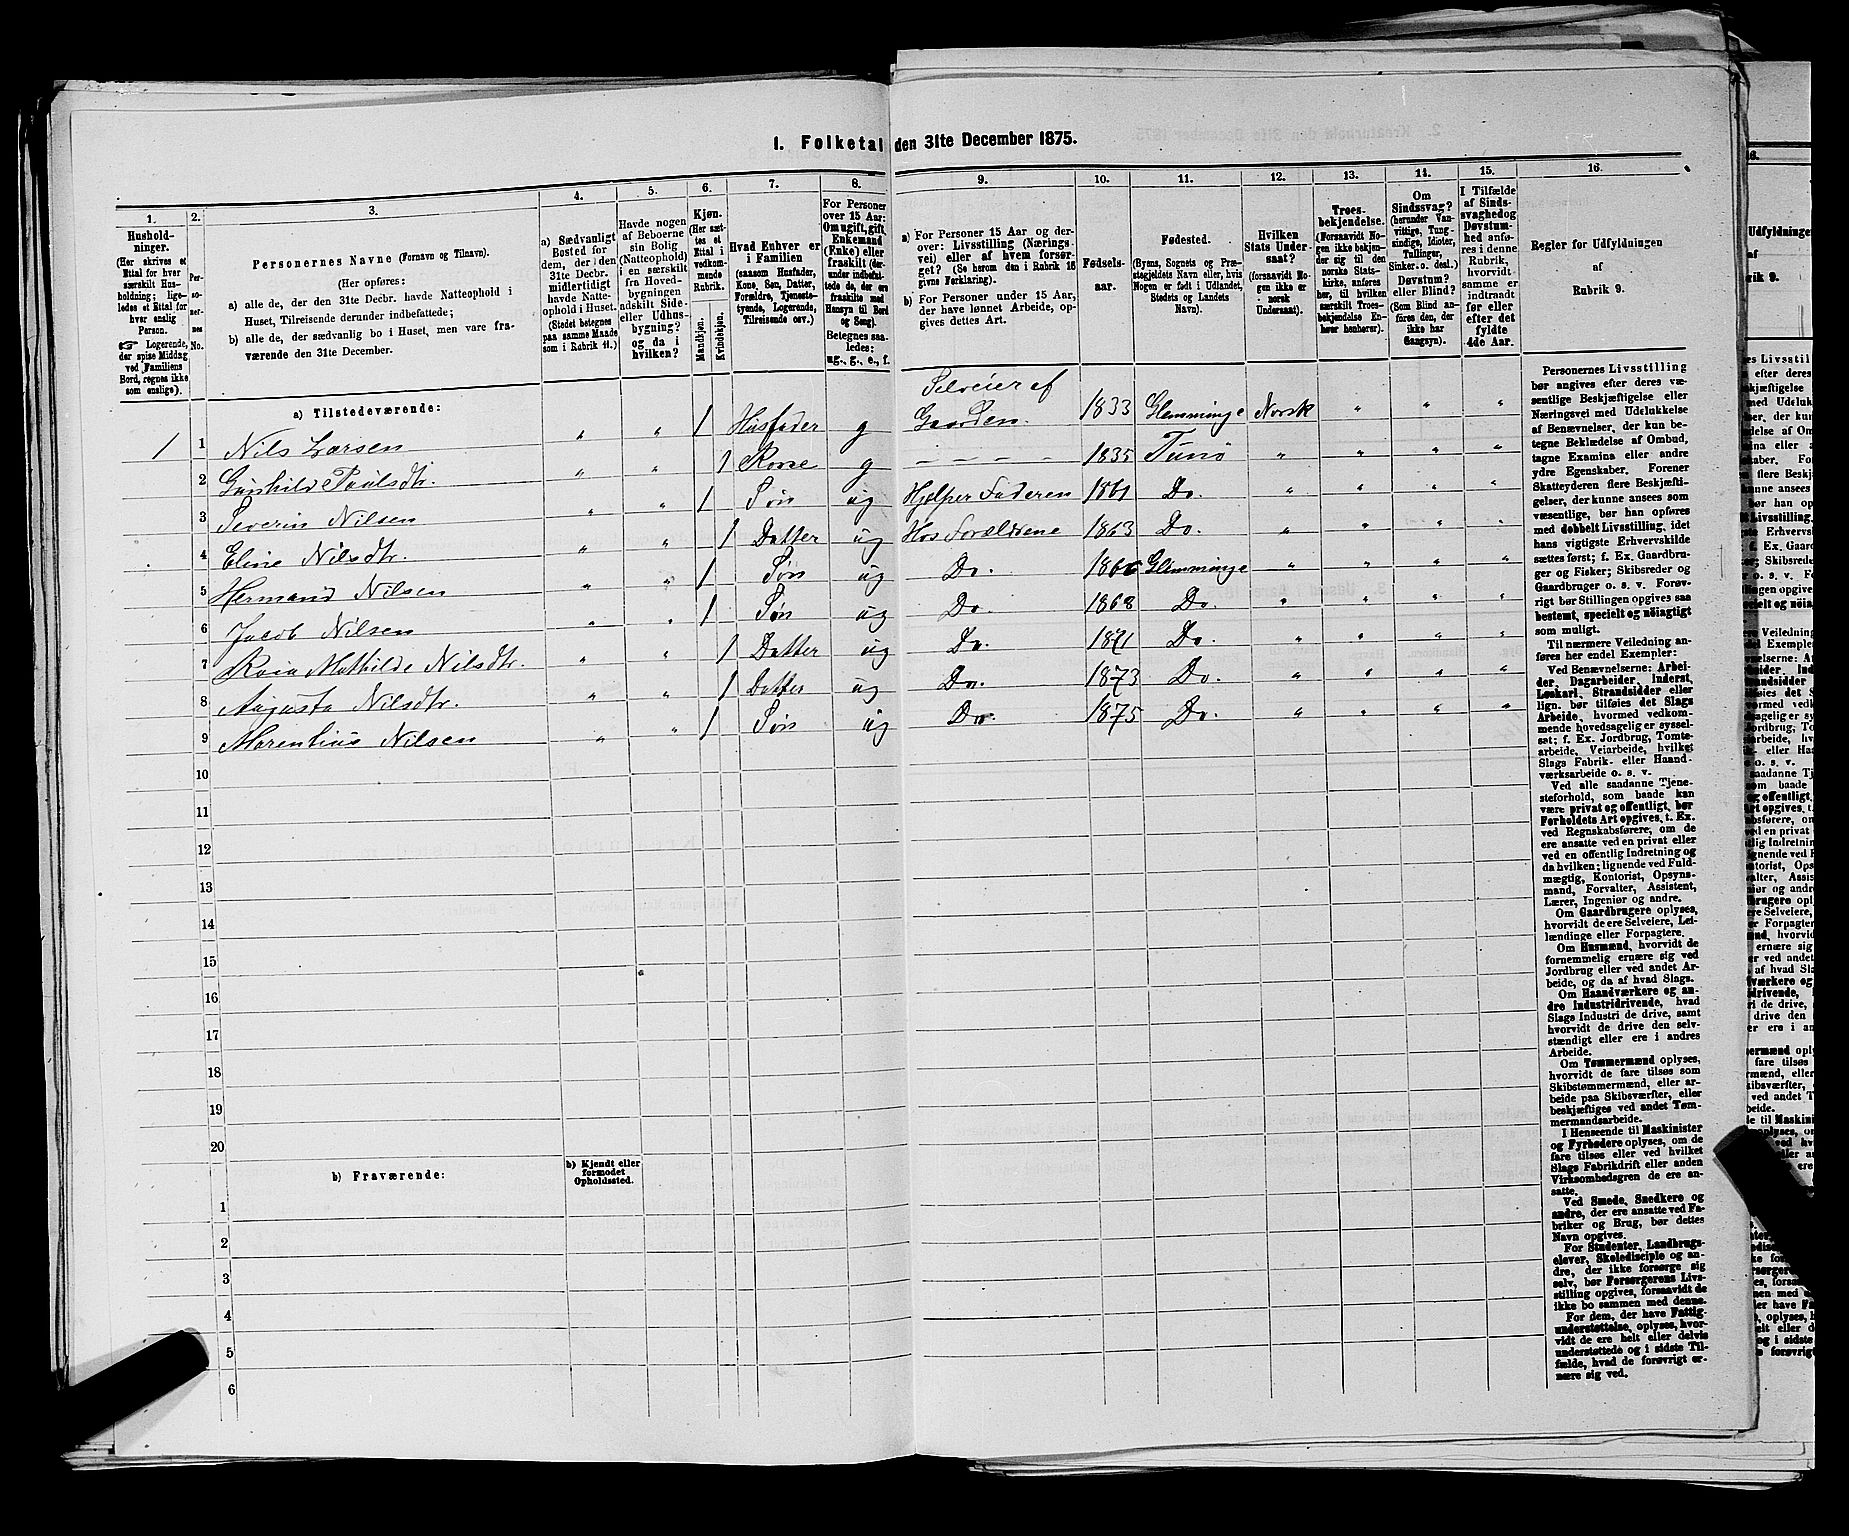 1. Folketal den 31te December 1875.
1.
Husholdninger.
(Her skrives et Ettal for hver særskilt Husholdning; ligeledes et Ettal for hver enslig Person.
☞ Logerende, der spise Middag ved Familiens Bord, regnes ikke som enslige).
2.
Personernes No.
3.
Personernes Navne (Fornavn og Tilnavn).
(Her opføres:
a) alle de, der den 31te Decbr. havde Natteophold i Huset, Tilreisende derunder indbefattede;
b) alle de, der sædvanlig bo i Huset, men vare fraværende den 31te December.
4.
a) Sædvanligt Bosted for dem, der i den 31te Decbr. midlertidigt havde Natteophold i Huset.
(Stedet betegnes paa samme Maade som i Rubrik 11.)
5.
Havde nogen af Beboerne sin Bolig (Natteophold) i en særskilt fra Hovedbygningen adskilt Side- eller Udhusbygning? og da i hvilken?
6.
Kjøn.
(Her sættes et Ettal i vedkommende Rubrik.
Mandkjøn.
Kvindekjøn.
7.
Hvad Enhver er i Familien
(saasom Husfader, Kone, Søn, Datter, Forældre, Tjenestetyende, Logerende, Tilreisende osv.)
8.
For Personer over 15 Aar: Om ugift, gift, Enkemand (Enke) eller fraskilt (derunder indbefattede de, der ere fraskilte med Hensyn til Bord og Seng).
Betegnes saaledes:
ug., g., e., f.
9.
a) For Personer 15 Aar og derover: Livsstilling (Næringsvei) eller af hvem forsørget? (Se herom den i Rubrik 16 givne Forklaring.)
b) For Personer under 15 Aar, der have lønnet Arbeide, opgives dettes Art.
10.
Fødselsaar.
11.
Fødested.
(Byens, Sognets og Præstegjeldets Navn eller, hvis Nogen er født i Udlandet, Stedets og Landets Navn).
12.
Hvilken Stats Undersaat?
(forsaavidt Nogen ikke er norsk Undersaat).
13.
Troesbekjendelse.
(Forsaavidt Nogen ikke bekjender sig til den norske Statskirke, anføres her, til hvilken særskilt Troesbekjendelse Enhver henhører).
14.
Om Sindssvag?
(herunder Vanvittige, Tungsindige, Idioter, Tullinger, Sinker o. desl.)
Døvstum? eller Blind?
(Som Blind anføres den, der ikke har Gangsyn).
15.
I Tilfælde af Sindssvaghed og Døvstumhed anføres i denne Rubrik, hvorvidt samme er indtraadt før eller efter det fyldte 4de Aar.
16.
Regler for Udfyldningen
af
Rubrik 9.
a) Tilstedeværende:
1 1 Nils Larsen " " 1 Husfader g Selveier af Gaarden. 1833 Glemminge Norsk " " "
2 Gunhild Paulsdtr. " " 1 Kone g – – – – 1835 Tunø " " " "
3 Severin Nilsen " " 1 Søn ug Hjelper Faderen 1861 Do. " " " "
4 Eline Nilsdtr. " " 1 Datter ug Hos Forældrene 1863 Do. " " " "
5 Hermand Nilsen " " 1 Søn ug Do. 1866 Glemminge " " " "
6 Jacob Nilsen " " 1 Søn ug Do. 1868 Do. " " " "
7 Rosa Mathilde Nilsdtr. " " 1 Datter ug Do. 1871 Do. " " " "
8 Augusta Nilsdtr. " " 1 Datter ug Do. 1873 Do. " " " "
9 Marentius Nilsen " " 1 Søn ug Do. 1875 Do. " " " "
10
11
12
13
14
15
16
17
18
19
20
b) Fraværende:
b) Kjendt eller formodet Opholdssted.
1
2
3
4
5
6
Personernes Livsstilling
bør angives efter deres væ-
sentlige Beskjæftigelse eller
Næringsvei med Udelukkelse
af Benævnelser, der kun be-
tegne Beklædelse af Ombud,
tagne Examina eller andre
ydre Egenskaber. Forener
Skatteyderen flere Beskjæfti-
gelser, der kunne ansees som
væsentlige, bør han opføres
med dobbelt Livsstilling, idet
hans vigtigste Erhvervskilde
sættes først; f. Ex. Gaardbru-
ger og Fisker; Skibsreder og
Gaardbruger o. s. v. Forøv-
rigt bør Stillingen opgives saa
bestemt, specielt og nøiagtigt
som muligt.
Til nærmere Veiledning an-
føres her endel Exempler:
Ved Benævnelserne: Arbei-
der, Dagarbeider, Inderst,
Løskarl, Strandsidder eller
lign. bør tilføies det Slags
Arbeide, hvormed vedkom-
mende hovedsagelig er syssel-
sat; f. Ex. Jordbrug, Tomte-
arbeide, Veiarbeide, hvilket
Slags Fabrik- eller Haand-
værksarbeide o. s. v.
Ved alle saadanne Tjene-
steforhold, som baade kan
være privat og offentligt, bør
Forholdets Art opgives, t. Ex.
ved Regnskabsførere, om de
ere ansatte ved en privat eller
ved en offentlig Indretning og
da hvilken; lignende ved Fuld-
mægtig, Kontorist, Opsyns-
mand, Forvalter, Assistent,
Lærer, Ingeniør og andre.
Om Gaardbrugere oplyses,
hvorvidt de ere Selveiere, Lei-
lændinge eller Forpagtere.
Om Husmænd, hvorvidt de
fornemmelig ernære sig ved
Jordbrug eller ved andet Ar-
beide, og da af hvad Slags.
Om Haandværkere og an-
dre Industridrivende, hvad
Slags Industri de drive, samt
hvorvidt de drive den selv-
stændigt eller ere i andres
Arbeide.
Om Tømmermænd oplyses,
hvorvidt de fare tilsøs som
Skibstømmermænd, eller ar-
beide paa Skibsværfter, eller
beskjæftiges ved andet Tøm-
mermandsarbeide.
I Henseende til Maskinister
og Fyrbødere oplyses, om de
fare tilsøs eller ved hvilket
Slags Fabrikdrift eller anden
Virksomhedsgren de ere an-
satte.
Ved Smede, Snedkere og
andre, der ere ansatte ved Fa-
briker og Brug, bør dettes
Navn opgives.
For Studenter, Landbrugs-
elever, Skoledisciple og an-
dre, der ikke forsørge sig
selv, bør Forsørgerens Livs-
stilling opgives, forsaavidt de
ikke bo sammen med denne.
For dem, der have Fattig-
understøttelse, oplyses, hvor-
vidt de ere helt eller delvis
understøttede og i sidste Til-
fælde, hvad de forøvrigt er-
nære sig ved.